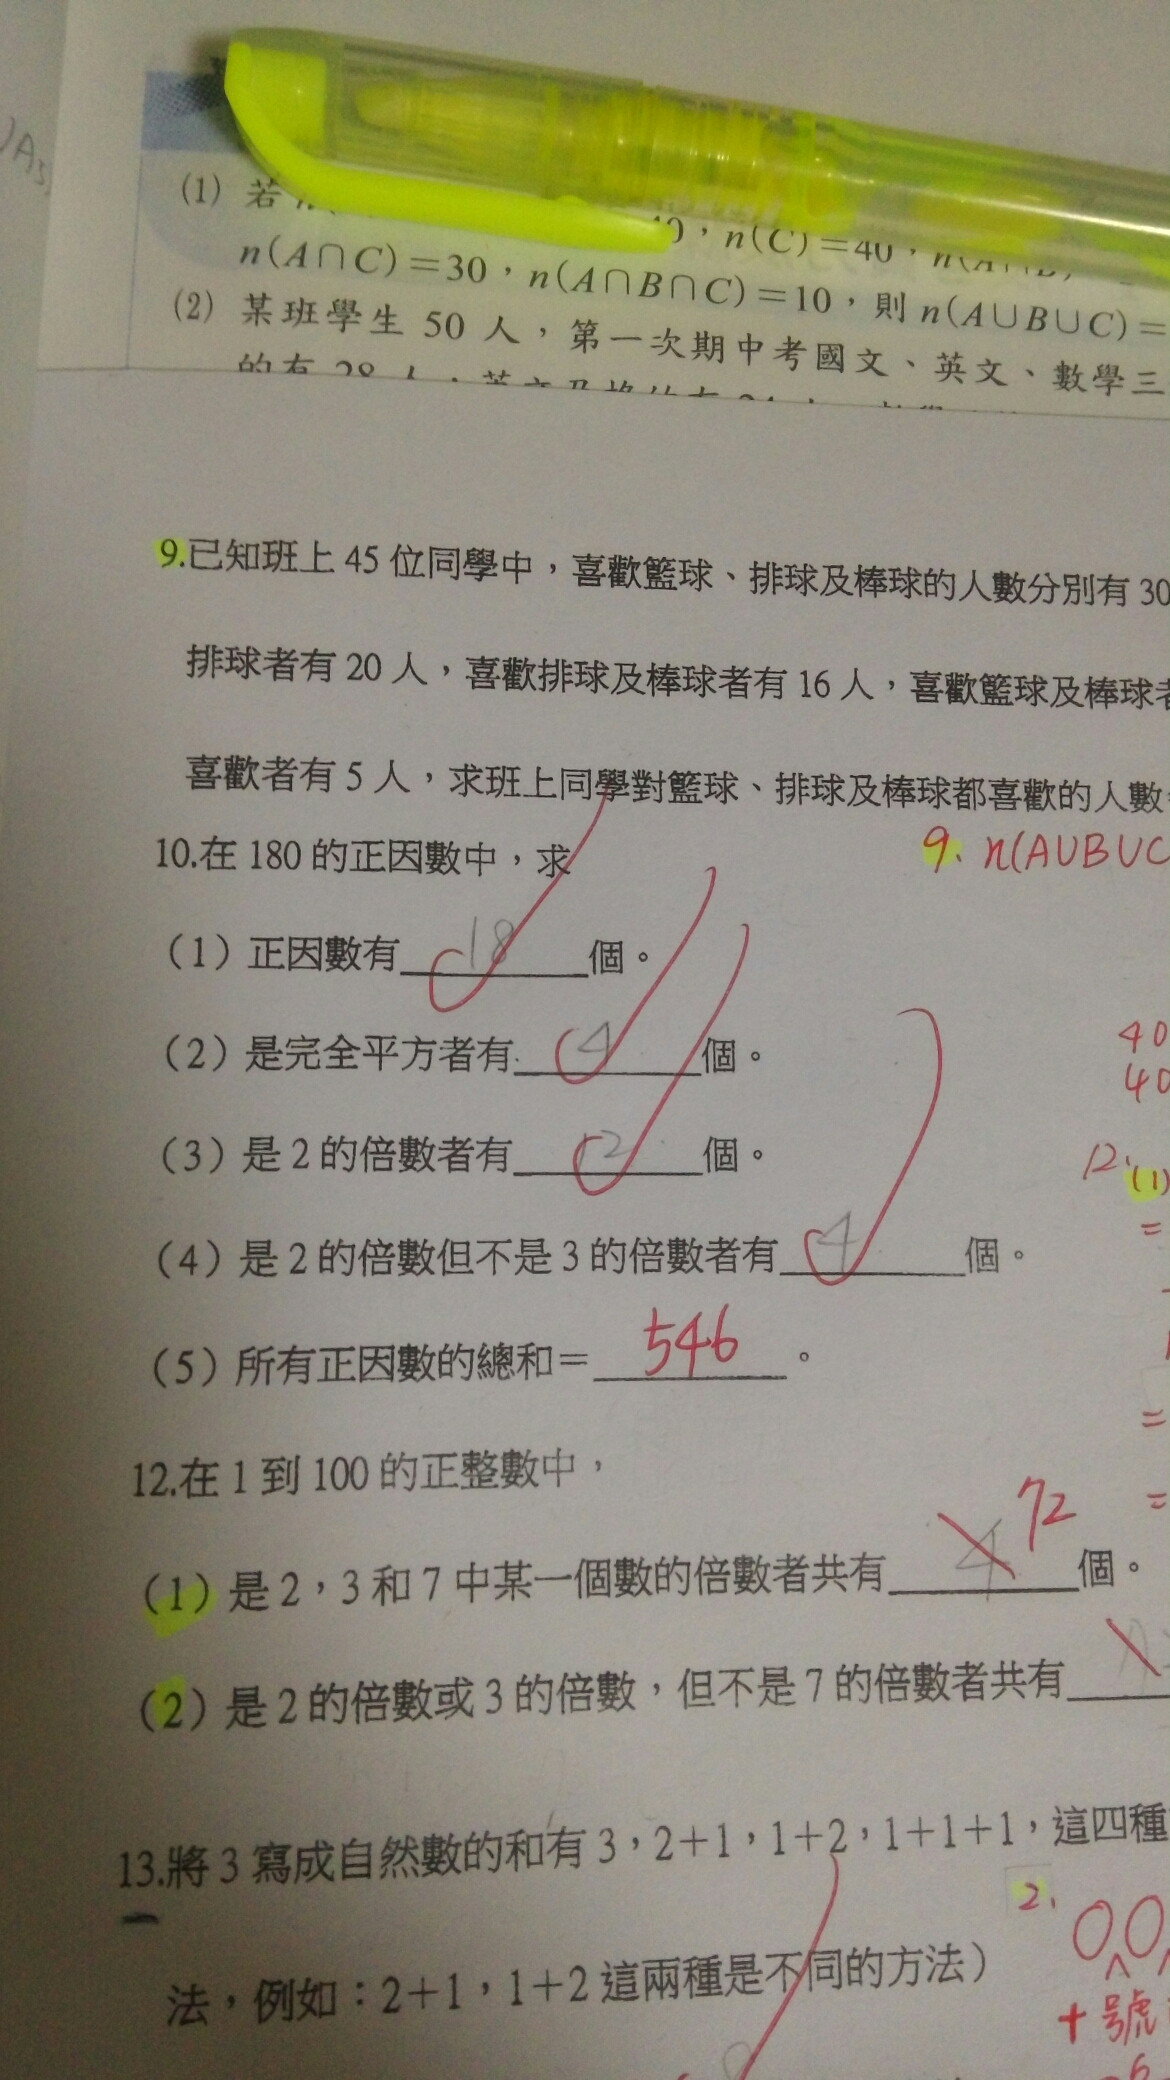 (1) 若
n(C)=40,
n(A∩C)=30,n(A∩B∩C)=10,則 n(A∪B∪C)=
(2) 某班學生 50 人,第一次期中考國文、英文、數學三
9.已知班上 45 位同學中,喜歡籃球、排球及棒球的人數分別有 30
排球者有 20 人,喜歡排球及棒球者有 16 人,喜歡籃球及棒球者
喜歡者有 5 人,求班上同學對籃球、排球及棒球都喜歡的人數
10.在 180 的正因數中,求
9. n(A∪B∪C
(1)正因數有 18 個。
(2)是完全平方者有 4 個。
40
40
(3)是 2 的倍數者有 12 個。
12. (1)
(4)是 2 的倍數但不是 3 的倍數者有 4 個。
=
(5)所有正因數的總和= 546 。
=
12.在 1 到 100 的正整數中,
=
(1)是 2,3 和 7 中某一個數的倍數者共有 4 72 個。
(2)是 2 的倍數或 3 的倍數,但不是 7 的倍數者共有
13.將 3 寫成自然數的和有 3,2+1,1+2,1+1+1,這四種
2.
法,例如:2+1,1+2 這兩種是不同的方法)
+號